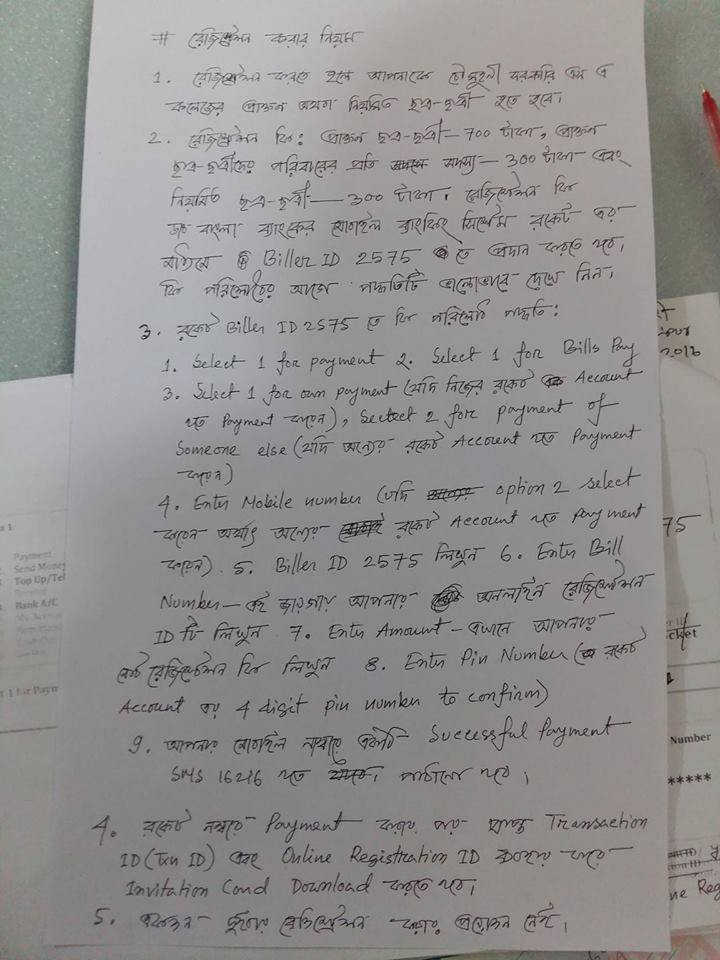 # রেজিস্ট্রেশন করার নিয়ম
1. রেজিস্ট্রেশন করতে হলে আপনাকে চৌমুহনী সরকারি এস এ
কলেজের প্রাক্তন অথবা নিয়মিত ছাত্র-ছাত্রী হতে হবে।
2. রেজিস্ট্রেশন ফি: প্রাক্তন ছাত্র-ছাত্রী — 700 টাকা, প্রাক্তন
ছাত্র-ছাত্রীদের পরিবারের প্রতি সদস্য — 300 টাকা এবং
নিয়মিত ছাত্র-ছাত্রী — 300 টাকা। রেজিস্ট্রেশন ফি
ডাচ বাংলা ব্যাংকের মোবাইল ব্যাংকিং সিস্টেম রকেট এর
মাধ্যমে Biller ID 2575 তে প্রদান করতে হবে।
ফি পরিশোধের আগে পদ্ধতিটি ভালোভাবে দেখে নিন।
3. রকেট Biller ID 2575 তে ফি পরিশোধ পদ্ধতি:
1. Select 1 for payment 2. Select 1 for Bills Pay
3. Select 1 for own payment (যদি নিজের রকেট Account
হতে Payment করেন), Select 2 for payment of
Someone else (যদি অন্যের রকেট Account হতে Payment
করেন)
4. Enter Mobile number (যদি option 2 select
করেন অর্থাৎ অন্যের রকেট Account হতে Payment
করেন). 5. Biller ID 2575 লিখুন 6. Enter Bill
Number — এই জায়গায় আপনার অনলাইন রেজিস্ট্রেশন
ID টি লিখুন 7. Enter Amount - এখানে আপনার
মোট রেজিস্ট্রেশন ফি লিখুন 8. Enter Pin Number (রকেট
Account এর 4 digit pin number to confirm)
9. আপনার মোবাইল নাম্বারে একটি Successful Payment
SMS 16216 হতে পাঠানো হবে।
4. রকেট নম্বরে Payment করার পর প্রাপ্ত Transaction
ID (Txn ID) এবং Online Registration ID ব্যবহার করে
Invitation Card Download করতে হবে।
5. একজন দুইবার রেজিস্ট্রেশন করার প্রয়োজন নেই।
2016
Payment
Send Money
Top Up/Tel
Bank A/C
t 1 for Paym
75
cket
Number
*****
ne Reg